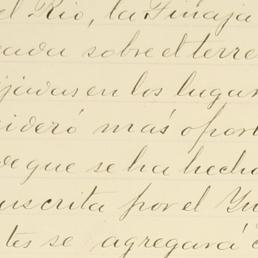 el Rio, la Tinaja
vada sobre el terre
ijadas en los lugar
sideró más opor
de que se ha hecho
uscrita por el
tes se agregará